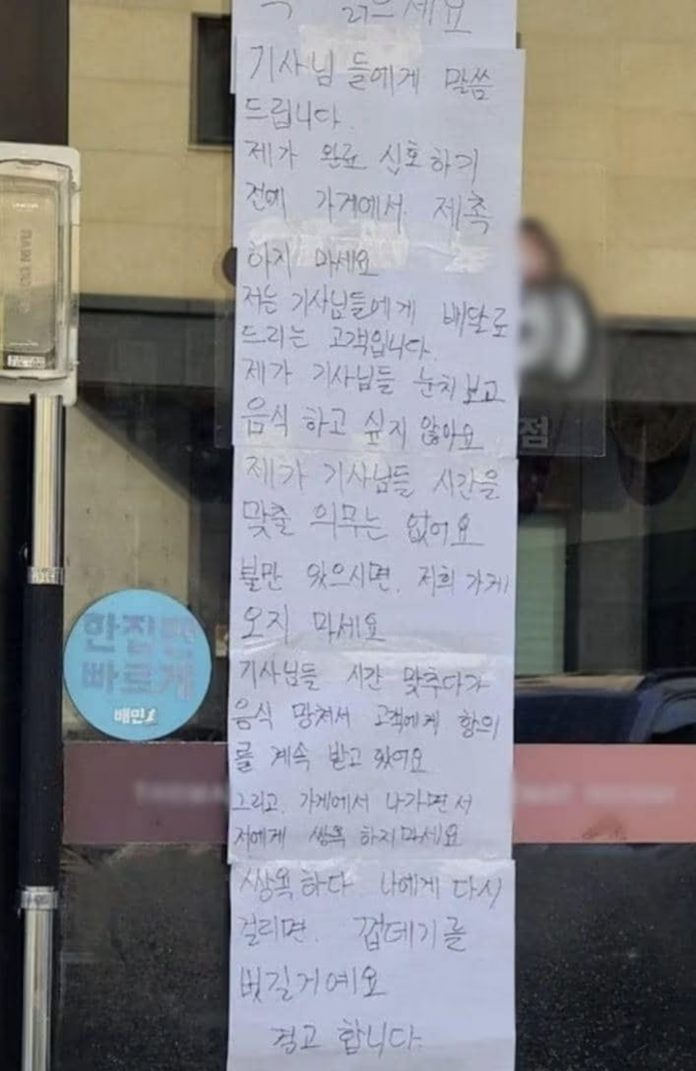 꼭 읽으세요
기사님들에게 말씀
드립니다.
제가 완료 신호하기
전에 가게에서 제촉
하지 마세요
저는 기사님들에게 배달료
드리는 고객입니다
제가 기사님들 눈치보고
음식 하고 싶지 않아요
제가 기사님들 시간을
맞출 의무는 없어요
불만 있으시면. 저희 가게
오지 마세요
기사님들 시간 맞추다가
음식 망쳐서 고객에게 항의
를 계속 받고 있어요
그리고. 가게에서 나가면서
저에게 쌍욕 하지마세요
쌍욕하다 나에게 다시
걸리면. 껍데기를
벗길거예요
경고 합니다.
점
한집만
빠르게
배민1